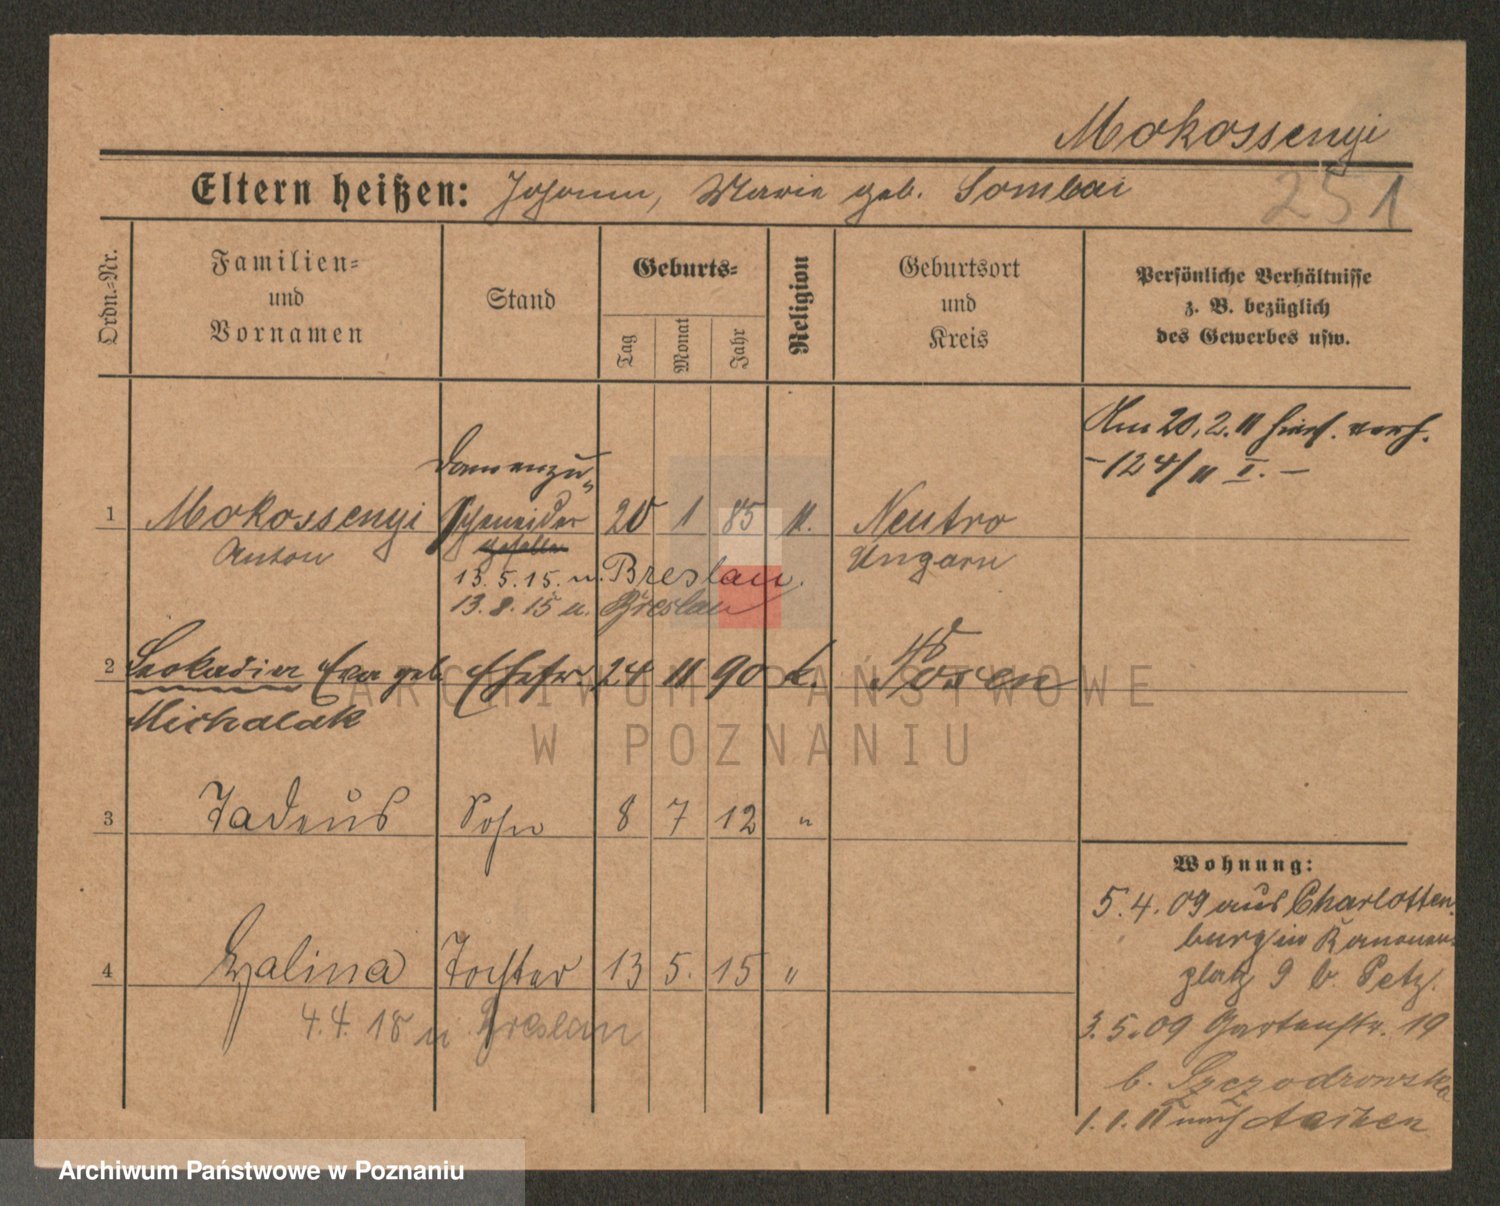 Mokossenyi
Eltern heißen: Johann, Marie geb. Sombai
251
Ordn.-Nr.
Familien-
und
Vornamen
Stand
Geburts-
Tag
Monat
Jahr
Religion
Geburtsort
und
Kreis
Persönliche Verhältnisse
z. B. bezüglich
des Gewerbes usw.
Am 20.2.11 hier verh.
-124/11 I. -
Damenzu-
1 Mokossenyi Schneider 20 1 85 k. Neutro
Anton Ungarn
13.5.15. n. Breslau.
13.8.15 n. Breslau
2 Leokadia Eva geb. Ehefr. 24 11 90 k. Posen
Michalak
3 Tadeus Sohn 8 7 12 "
4 Halina Tochter 13 5. 15 "
4.4.18 n Breslau
Wohnung:
5.4.09 aus Charlotten-
burg in Kanonen-
platz 9 b. Petz.
3.5.09 Gartenstr. 19
b. Szczodrowska
1.1.11 nach Aachen
ARCHIWUM PAŃSTWOWE
W POZNANIU
Archiwum Państwowe w Poznaniu